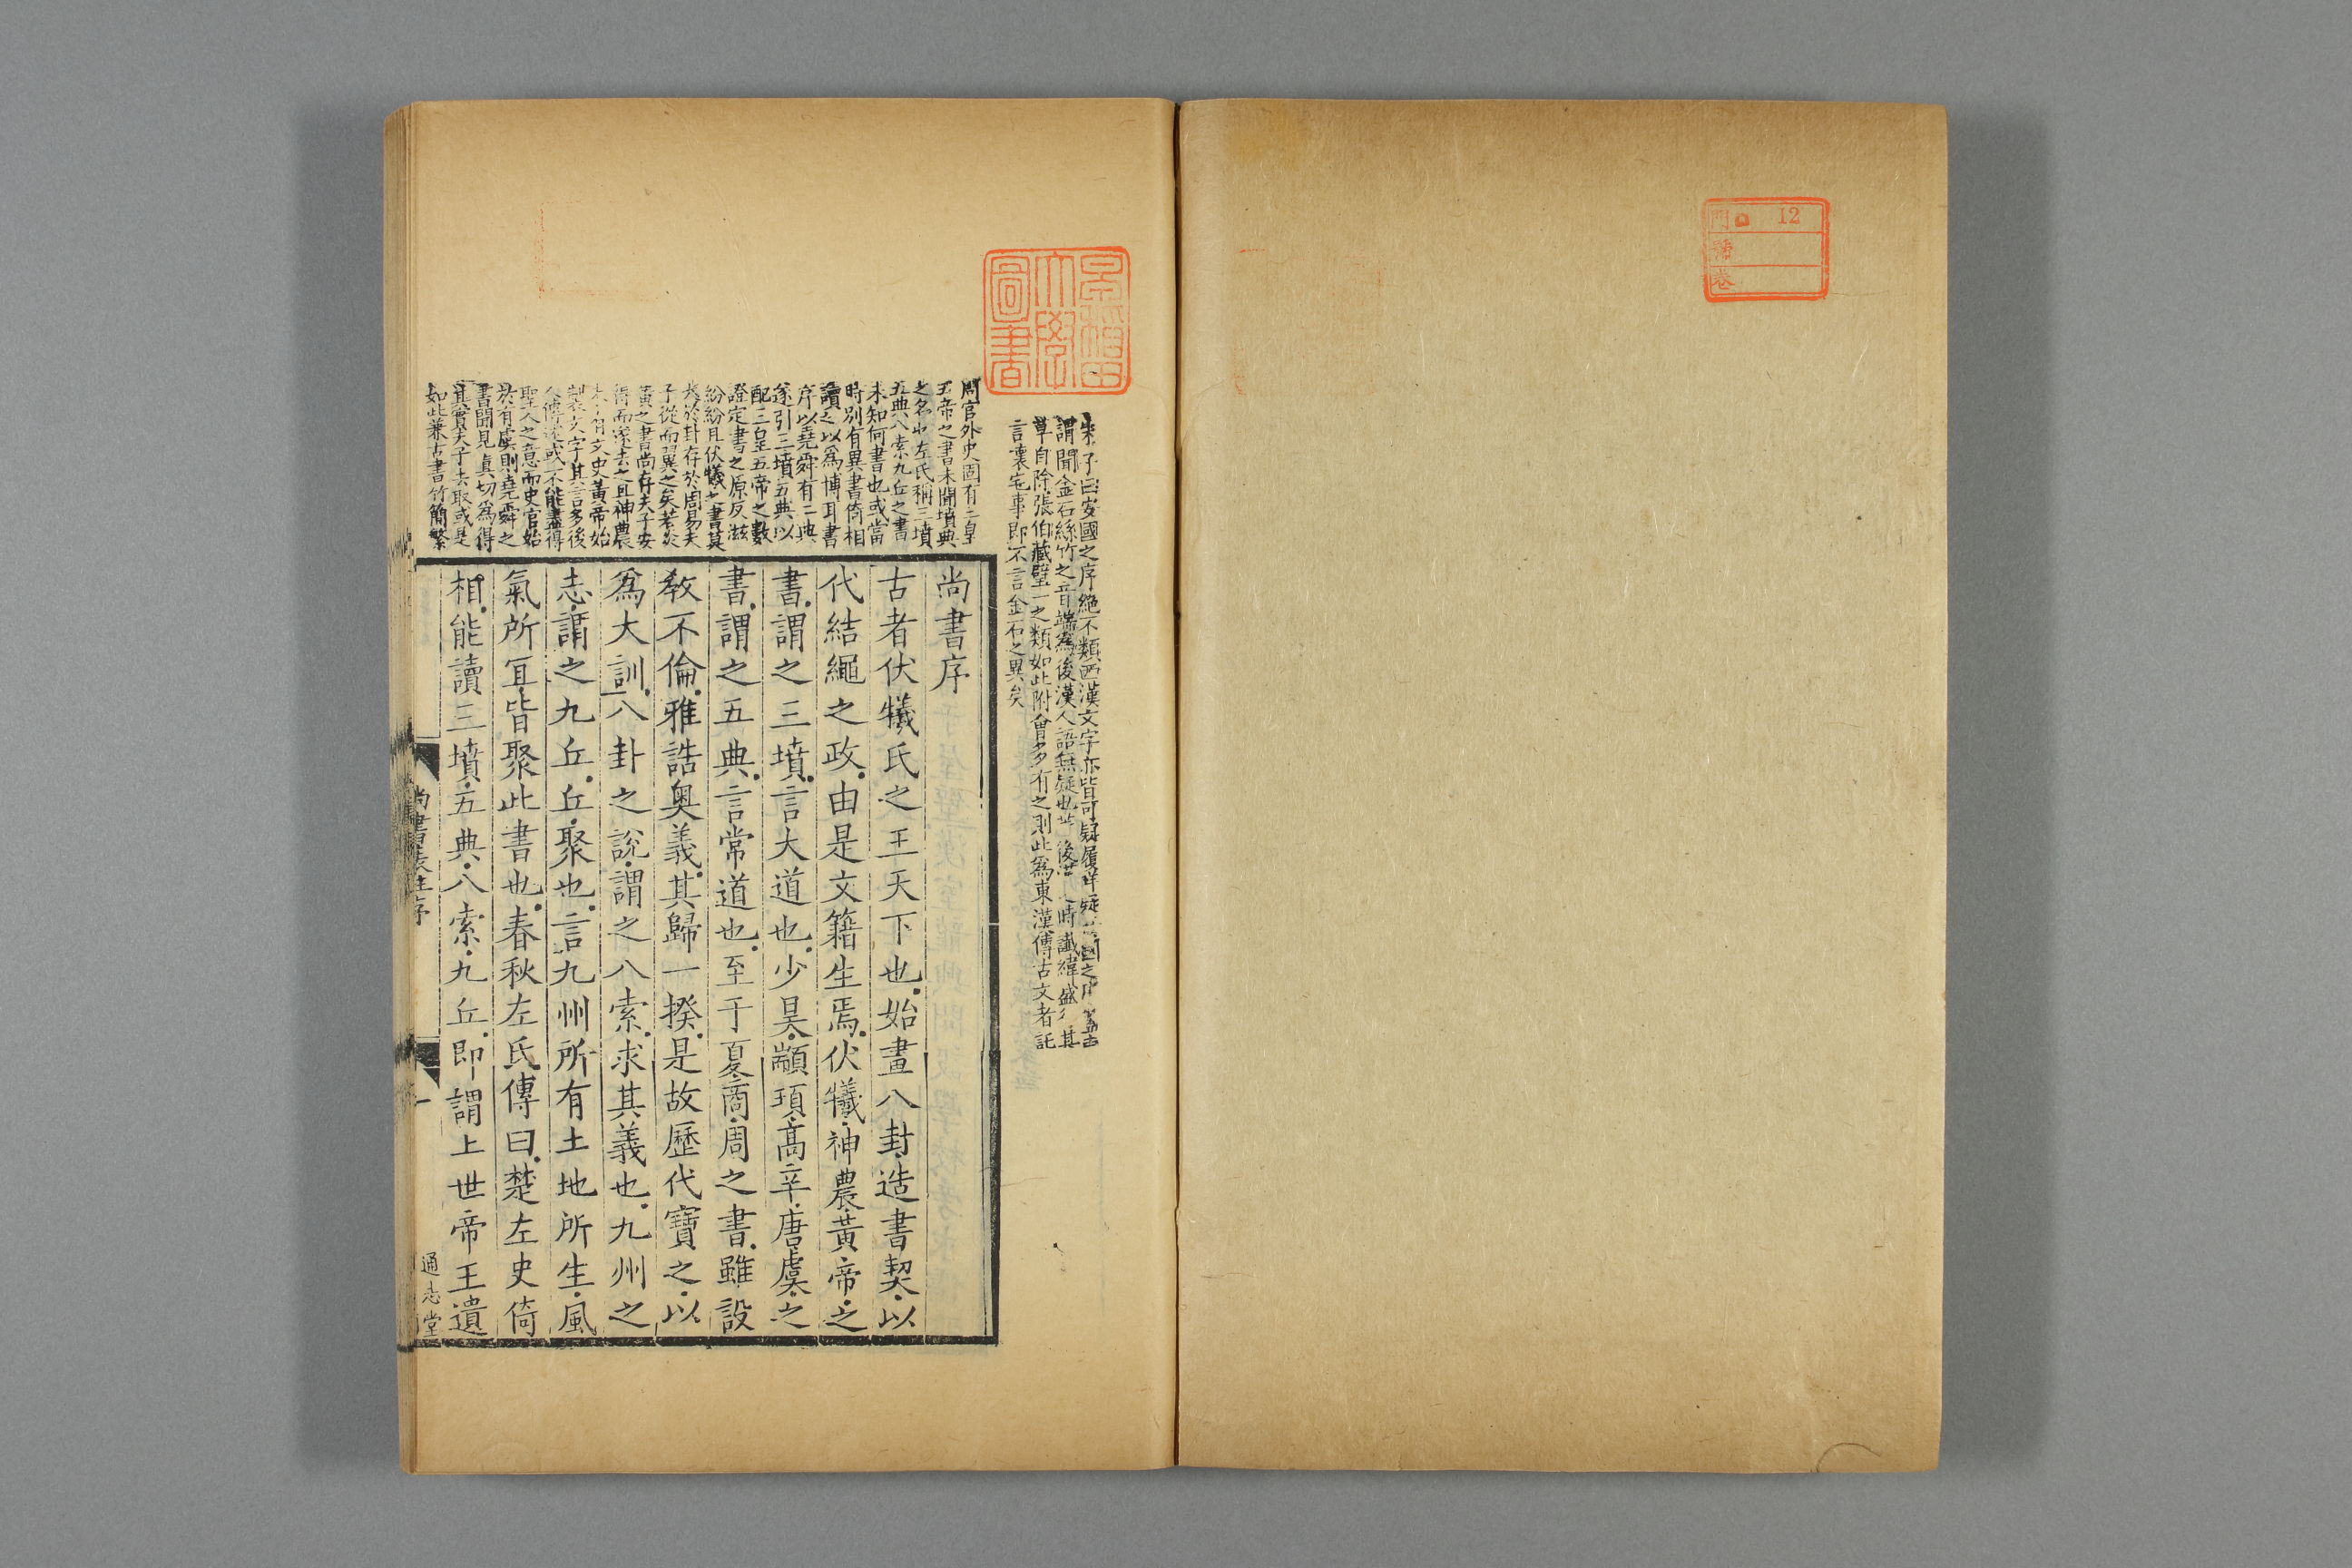 門口 12
號
卷
早稻田
大學
圖書
朱子曰安國之序絶不類西漢文字亦皆可疑
謂聞金石絲竹之音端爲後漢人語無疑也 後 時讖緯盛 其
草自除張伯藏璧一之類如此附會多有之則此爲東漢傳古文者託
言壞宅事即不言金石之異矣
周官外史固有三皇
五帝之書未聞墳典
之名也左氏稱三墳
五典八索九丘之書
未知何書也或當
時別有異書倚相
讀之以爲博耳書
序以堯舜有二典
遂引三墳五典以
配三皇五帝之數
證定書之原反滋
紛紛且伏犧之書莫
於卦存於周易夫
子從而翼之矣若炎
黃之書尚存夫子安
得而黨去之且神農
未有文史黃帝始
製文字其言多後
人傳述或不能盡得
聖人之意而史官始
於有虞則堯舜之
書聞見真切爲得
其實夫子去取或是
如此兼古書竹簡繁
尚書序
古者伏犧氏之王天下也始畫八卦造書契以
代結繩之政由是文籍生焉伏犧神農黃帝之
書謂之三墳言大道也少昊顓頊高辛唐虞之
書謂之五典言常道也至于夏商周之書雖設
教不倫雅誥奥義其歸一揆是故歷代寶之以
爲大訓八卦之說謂之八索求其義也九州之
志謂之九丘丘聚也言九州所有土地所生風
氣所冝皆聚此書也春秋左氏傳曰楚左史倚
相能讀三墳五典八索九丘即謂上世帝王遺
尚書表注序
一
通志堂